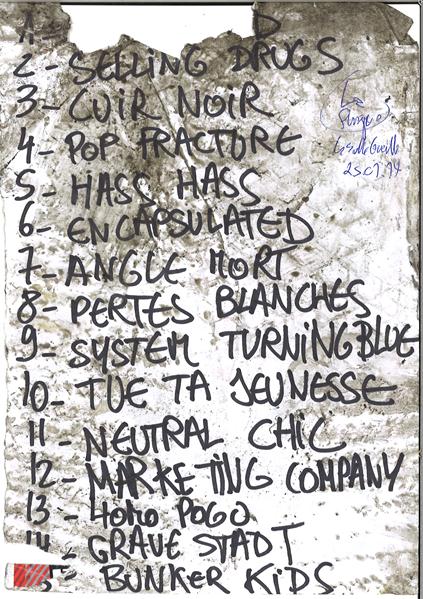 1-
2- SELLING DRUGS
3- CUIR NOIR
4- POP FRACTURE
5- HASS HASS
6- ENCAPSULATED
7- ANGLE MORT
8- PERTES BLANCHES
9- SYSTEM TURNING BLUE
10- TUE TA JEUNESSE
11- NEUTRAL CHIC
12- MARKETING COMPANY
13- HOMO POGO
14- GRAVE STADT
15- BUNKER KIDS